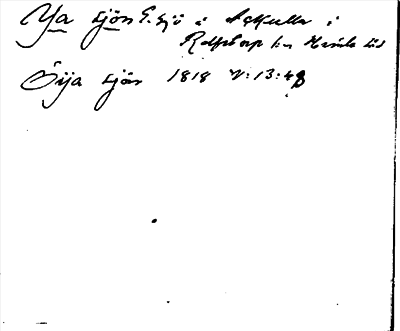 Ya sjön G. sjö i Askulla i
Rolfstorp sn Himle hd
Öija sjön 1818 V: 13: 48